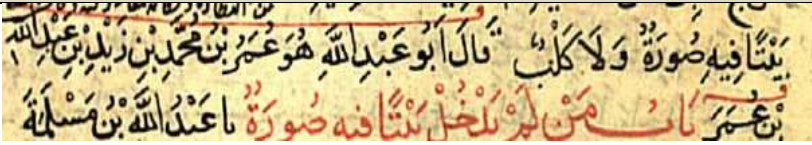 بَيْتًا فِيهِ صُورَةٌ وَلَا كَلْبٌ قَالَ أَبُو عَبْدِ اللَّهِ هُوَ عُمَرُ بْنُ مُحَمَّدِ بْنِ زَيْدِ بْنِ عَبْدِ اللَّهِ
بْنِ عُمَرَ بَابُ مَنْ لَمْ يَدْخُلْ بَيْتًا فِيهِ صُورَةٌ نا عَبْدُ اللَّهِ بْنُ مَسْلَمَةَ